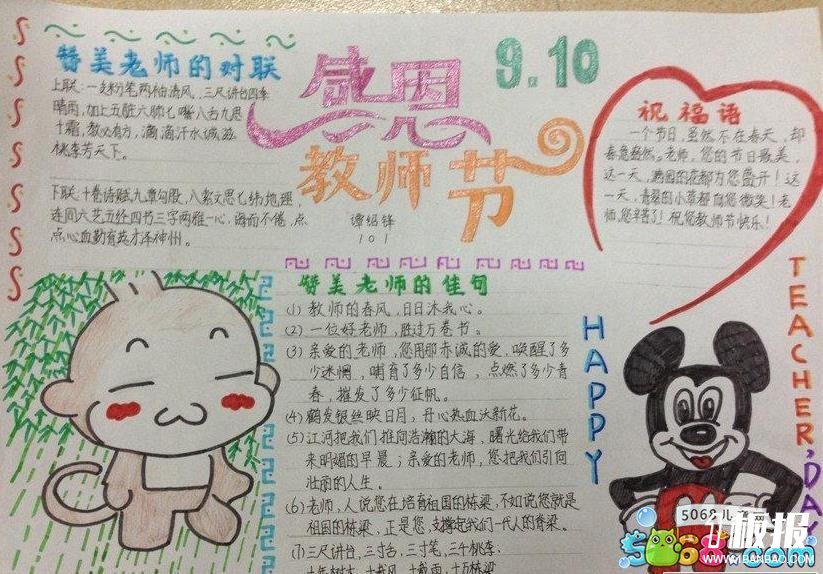 赞美老师的对联
上联:一支粉笔两袖清风,三尺讲台四季
晴雨,加上五脏六肺七嘴八舌九思
十霜,教必有方,滴滴汗水诚滋
桃李芳天下。
下联:十卷诗赋九章勾股,八索文思七纬地理,
连同六艺五经四书三字两雅一心,诲而不倦,点
点心血勤育英才泽神州。
感恩
教师节
9.10
谭绍锋
101
祝福语
一个节日,虽然不在春天,却
春意盎然。老师,您的节日最美,
这一天,满园的花都为您盛开!这
一天,青翠的小草都向您微笑!老
师,您辛苦了!祝您教师节快乐!
赞美老师的佳句
(1) 教师的春风,日日沐我心。
(2) 一位好老师,胜过万卷书。
(3) 亲爱的老师,您用那赤诚的爱,唤醒了多
少迷惘,哺育了多少自信,点燃了多少青
春,摧发了多少征帆。
(4) 鹤发银丝映日月,丹心热血沃新花。
(5) 江河把我们推向浩瀚的大海,曙光给我们带
来明媚的早晨;亲爱的老师,您把我们引向
壮丽的人生。
(6) 老师,人说您在培育祖国的栋梁,不如说您就是
祖国的栋梁,正是您,支撑起我们一代人的脊梁。
(7) 三尺讲台,三寸舌,三寸笔,三千桃李;
十年树木,十载风,十载雨,十万栋梁
HAPPY
TEACHER'DAY
5068儿童网
5068.com
板报
WWW.1BANBAO.COM